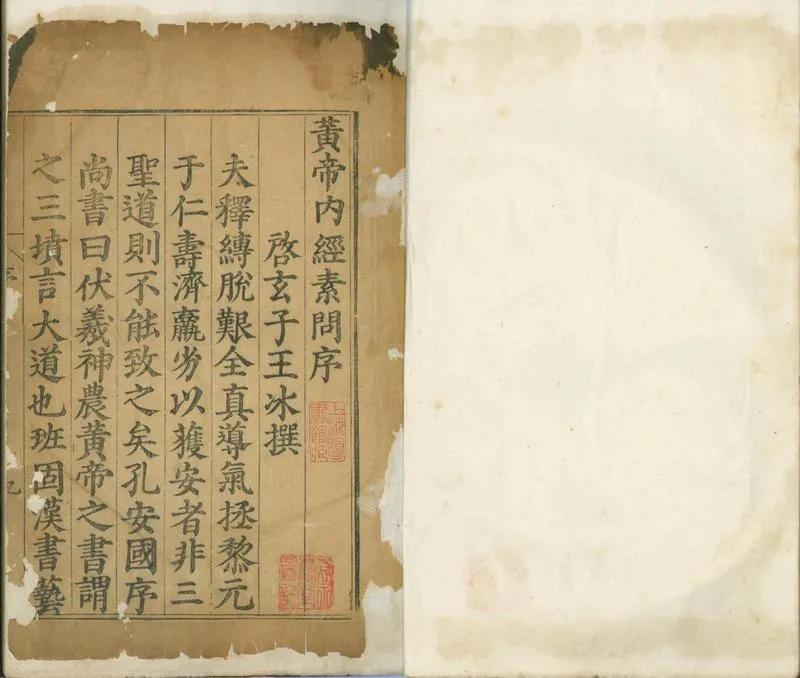 黃帝内經素問序
啓玄子王冰撰
夫釋縛脫艱全真導氣拯黎元
于仁壽濟羸劣以獲安者非三
聖道則不能致之矣孔安國序
尚書曰伏羲神農黃帝之書謂
之三墳言大道也班固漢書藝
上海圖書館藏